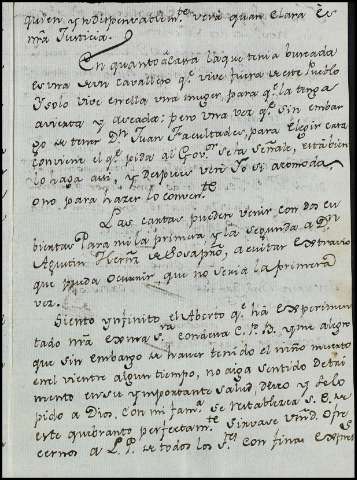 quien yndispensablemte. vera quan clara es
nrã Justicia.
En quanto a Casa la que tenia buscada
es una de un Cavallero qe. vive fuera de este Pueblo
y solo vive en ella una muger, para qe. la tenga
avierta y aseada: pero una vez qe. sin embar
go de tener Dn. Juan Facultades, para elegir casa
conviene el qe. pida al Govor. se la señale, está bien
lo haga asi, y despues veré Yo si acomoda,
o no para hazer lo convente.
Las cartas pueden venir con dos cu
biertas Para mi la primera y la segunda a Dn.
Agustin Hernz. de, a evitar extravio
que pueda ocurrir, que no seria la primera
vez.
Siento ynfinito el Aborto qe. há experimen
tado mrã Sra. Condesa C.P.B. y me alegro
que sin embargo de haver tenido el niño muerto
en el vientre algun tiempo, no aiga sentido detri
mento en su ymportante salud, deseo y de lo
pido a Dios, con mi fama. se restablesca S.S. de
este quebranto perfectamte. Sirvase Vmd. Ofre
cernos a L.P. de todos los Stes. con finas expres